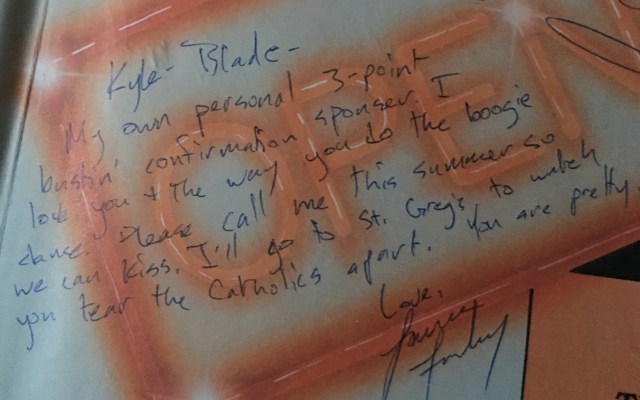 Kyle- Blade-
My own personal 3-point
bustin' confirmation sponser. I
love you + the way you do the boogie
dance. Please call me this summer so
we can kiss. I'll go to St. Greg's to watch
you tear the Catholics apart. You are pretty.
Love,
OPEN